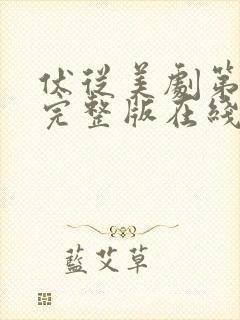 伏從美劇第
完整版在綫
藍艾草